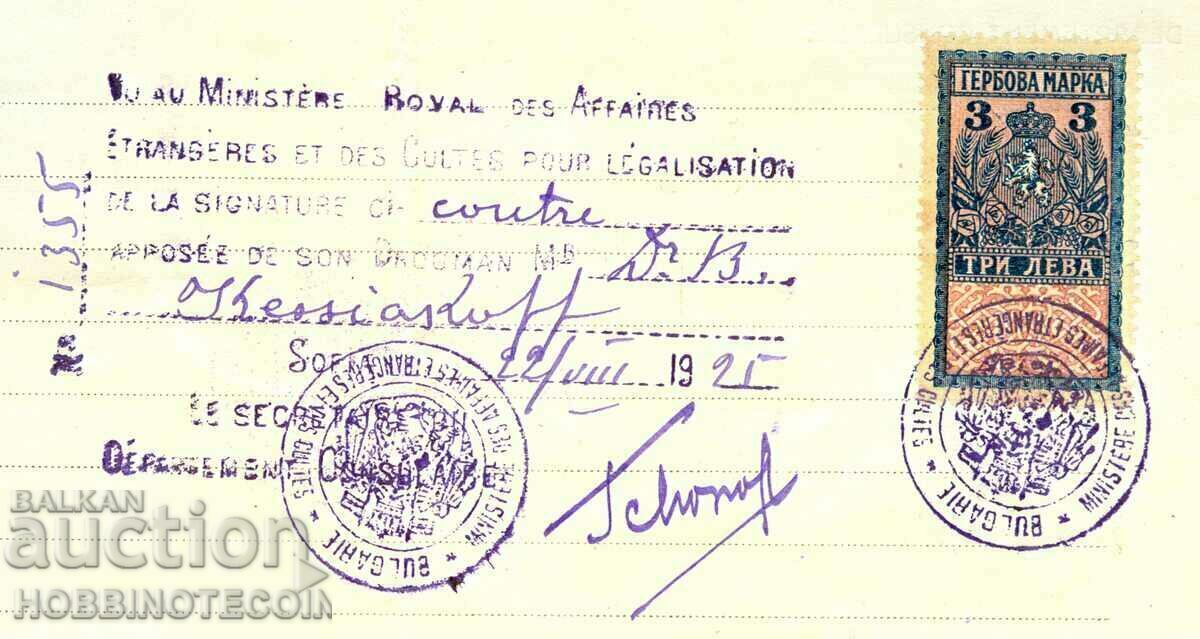 VU AU MINISTÈRE ROYAL DES AFFAIRES
ÉTRANGÈRES ET DES CULTES POUR LÉGALISATION
DE LA SIGNATURE CI- contre
APPOSÉE DE SON DROGMAN Mr Dr B.
Kessiakoff
SOFIA 22/VIII 1925
LE SECRÉTAIRE DU
DÉPARTEMENT CONSULAIRE
Nº 1355
ГЕРБОВА МАРКА
3 3
ТРИ ЛЕВА
MINISTÈRE DES AFFAIRES ETRANGÈRES ET DES CULTES
* BULGARIE *
MINISTÈRE DES AFFAIRES ETRANGÈRES ET DES CULTES
* BULGARIE *
BALKAN
auction
HOBBINOTECOIN